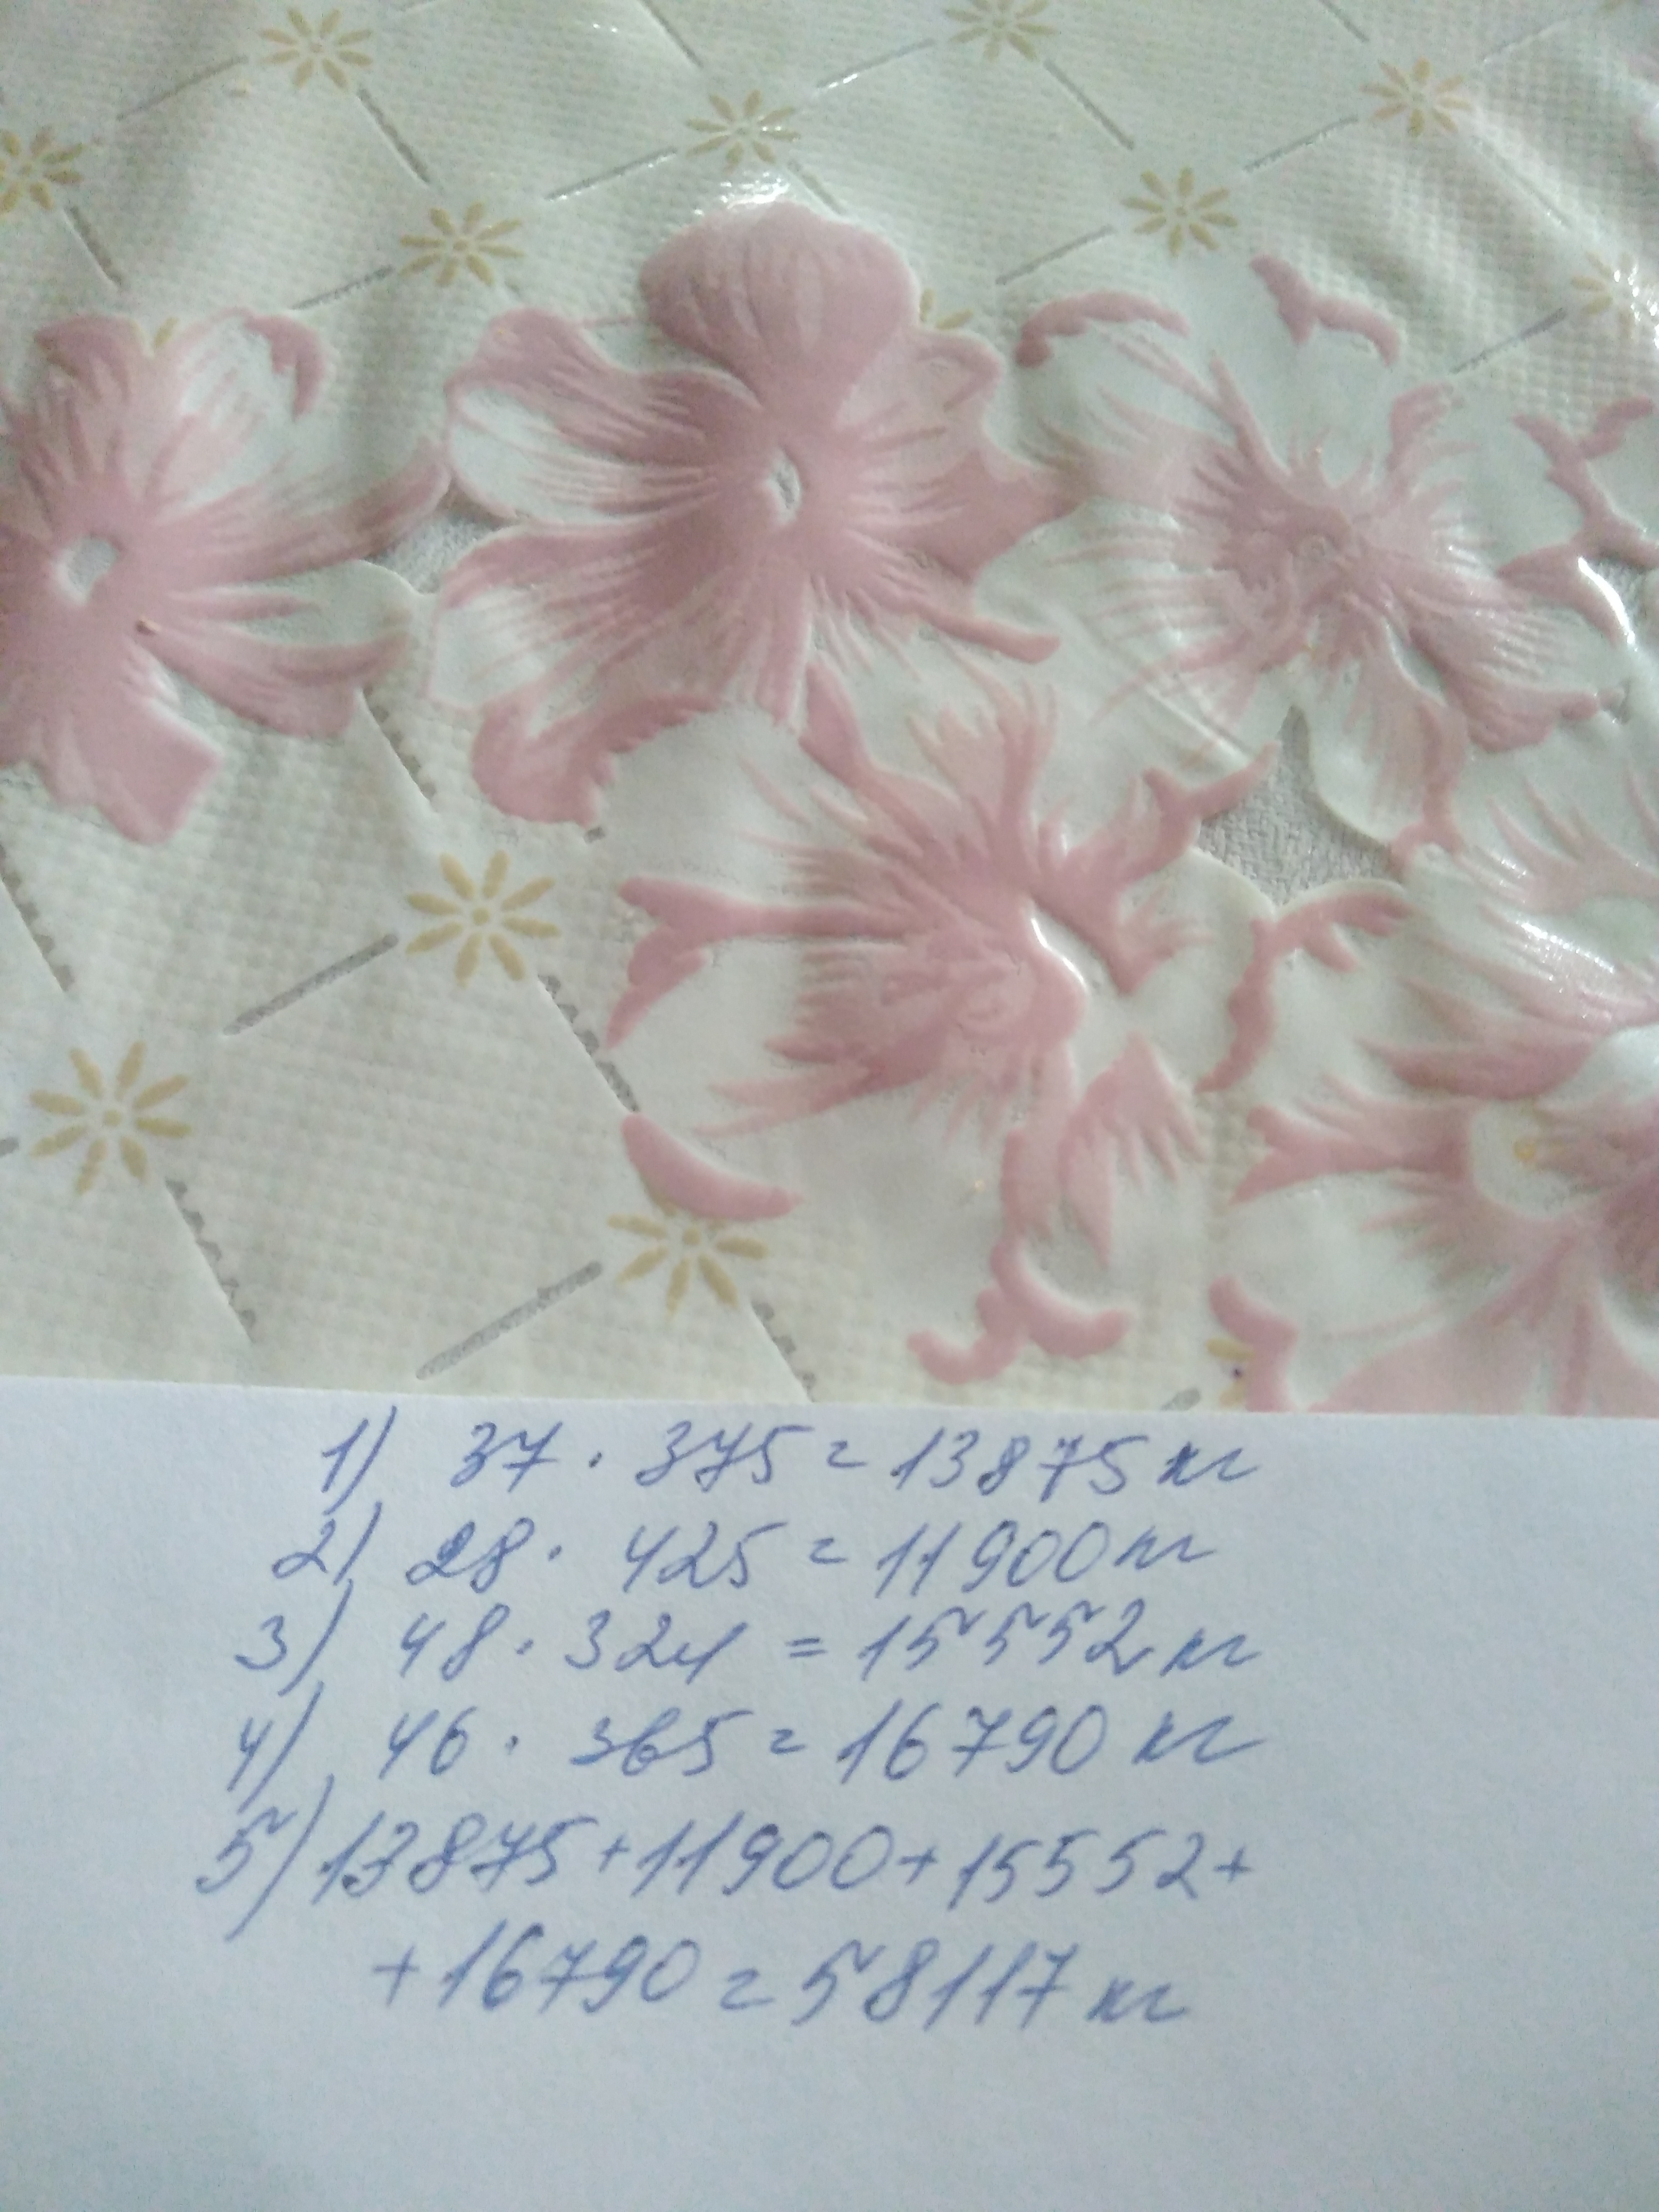 1) 37 · 375 = 13875 кг
2) 28 · 425 = 11900 кг
3) 48 · 324 = 15552 кг
4) 46 · 365 = 16790 кг
5) 13875 + 11900 + 15552 +
+ 16790 = 58117 кг